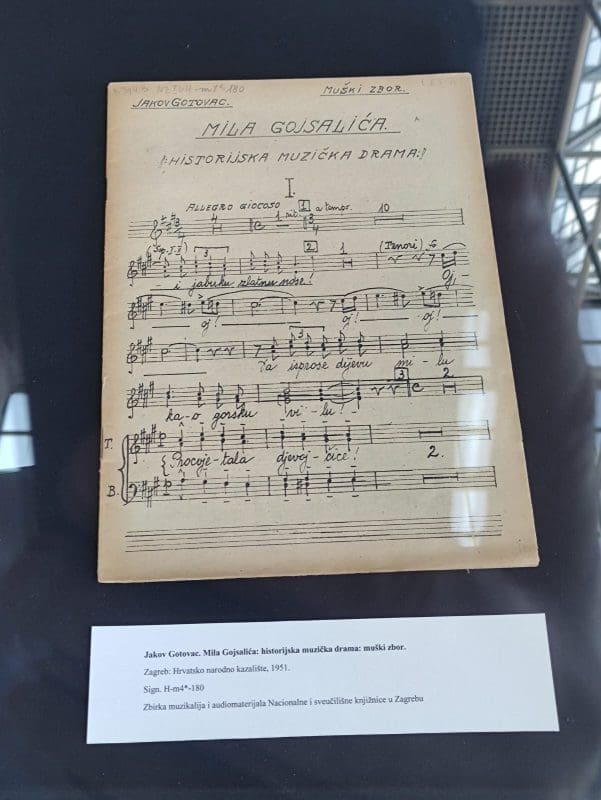 JAKOV GOTOVAC.
MUŠKI ZBOR.
MILA GOJSALIĆA.
/:HISTORIJSKA MUZIČKA DRAMA:/
I.
ALLEGRO GIOCOSO 1 a tempo. 10
(Sop. I-II) 3 2 1 (Tenori)
i jabuku zlatnu nose! Oj,
oj! oj! oj!
3
Ta isprose dijevu mi-lu
3 2
ka-o gorsku vi-lu!
T.
Procvje-tala djevoj-čice!
2.
B.
Jakov Gotovac. Mila Gojsalića: historijska muzička drama: muški zbor.
Zagreb: Hrvatsko narodno kazalište, 1951.
Sign. H-m4*-180
Zbirka muzikalija i audiomaterijala Nacionalne i sveučilišne knjižnice u Zagrebu